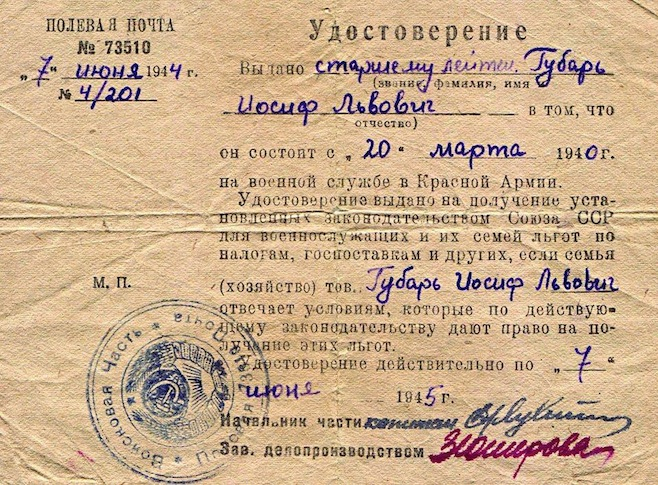 ПОЛЕВАЯ ПОЧТА
№ 73510
„7“ июня 1944 г.
№ 4/201
Удостоверение
Выдано старшему лейтен. Губарь
(звание, фамилия, имя и
Иосиф Львович в том, что
отчество)
он состоит с „20“ марта 1940г.
на военной службе в Красной Армии.
Удостоверение выдано на получение уста-
новленных законодательством Союза ССР
для военнослужащих и их семей льгот по
налогам, госпоставкам и других, если семья
(хозяйство) тов. Губарь Иосиф Львович
отвечает условиям, которые по действую-
щему законодательству дают право на по-
лучение этих льгот.
Удостоверение действительно по „7“
июня 1945г.
М. П.
Начальник части капитан
Зав. делопроизводством
Войсковая Часть * Полевая Почта *